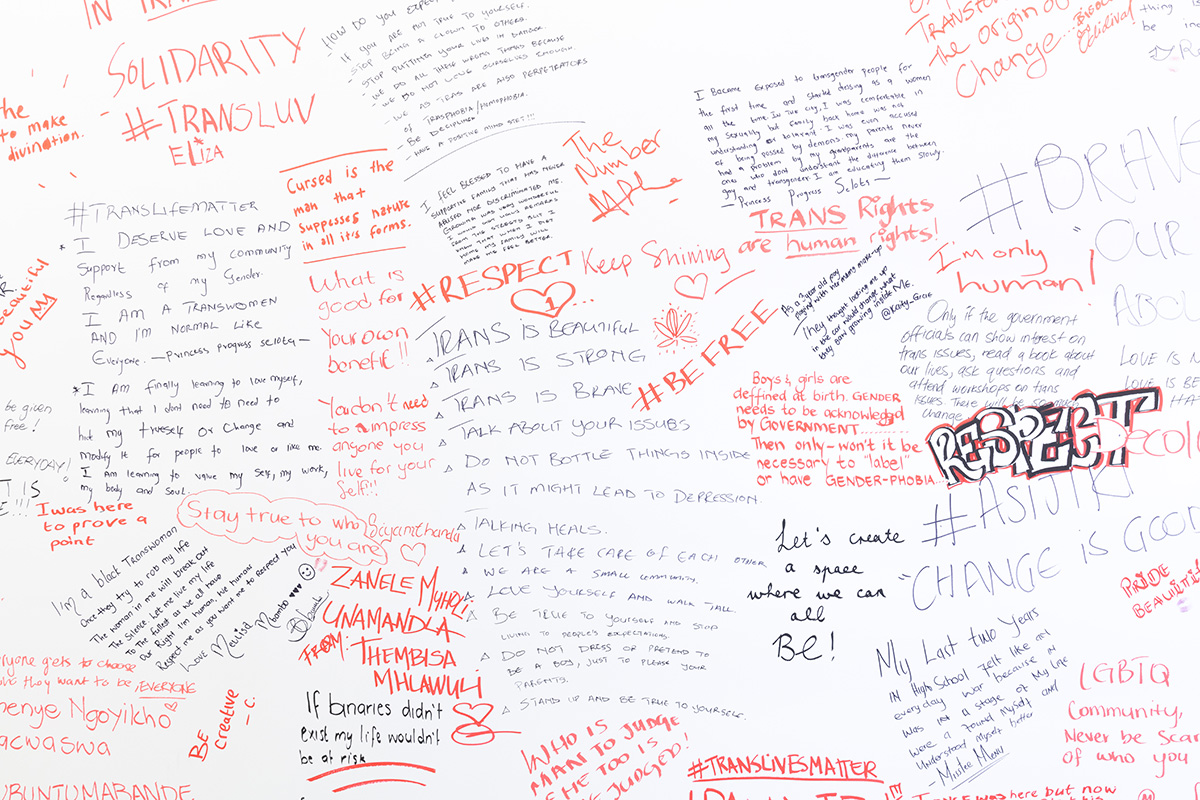 IN
SOLIDARITY
#TRANSLUV
ELIZA
the
to make
divination.
HOW DO YOU EXPECT
IF YOU ARE NOT TRUE TO YOURSELF.
- STOP BEING A CLOWN TO OTHERS.
- STOP PUTTING YOUR LIVES IN DANGER
- WE DO ALL THESE WRONG THINGS BECAUSE
- WE DO NOT LOVE OURSELVES ENOUGH.
- WE AS TGAS ARE ALSO PERPETRATORS
OF TRASPHOBIA/HOMOPHOBIA.
- BE DECIPLINED
- HAVE A POSITIVE MIND SET!!!
The
Number
I Became exposed to transgender people for
the first time and started dressing as a women
all the time. In the city, I was comfortable in
my sexuality but family back home was not
understanding or tolerant. I was even accused
of being possed by demons my parents never
had a problem by my grandparents are the
ones who dont understand the difference between
gay and transgender. I am educating them slowly.
Princess Progress Selota
TRANSFORM
the origin of
Change
thing is
be
#BRAVE
"OUR
#TRANSLIFEMATTER
* I DESERVE LOVE AND
Support from my community
Regardless of my Gender.
I AM A TRANSWOMEN
AND I'M NORMAL LIKE
Everyone. — Princess progress selota —
* I Am finally learning to love myself,
learning that I dont need to need to
hut my trueself or Change and
modify it for people to love or like me.
I am learning to value my self, my work,
my body and soul.
beautiful
you MY
be given
free!
EVERYDAY!
Cursed is the
man that
suppesses nature
in all it's forms.
I FEEL BLESSED TO HAVE A
SUPPORTIVE FAMILY THAT HAS NEVER
ABUSED NOR DISCRIMINATED ME.
GROWING UP WAS WONDERFUL
I WOULD GET REMARKS
FROM THE STREETS BUT I
KNEW THAT WHEN I GET
HOME MY FAMILY WILL
MAKE ME FEEL BETTER.
What is
good for
Your own
benefit!!
You don't need
to impress
anyone you
live for your
Self!!!
#RESPECT
1
Keep Shining
TRANS Rights
are human rights!
#BE FREE
As a 3 year old boy
playing with her mama's make-up
They thought locking me up
in the car would change what
they saw growing inside ME.
@Katy_Grae
I'm only
human!
Only if the government
officials can show interest on
trans issues, read a book about
our lives, ask questions and
attend workshops on trans
issues. There will be
change
ABOU
LOVE IS
LOVE IS BE
TRANS IS BEAUTIFUL
TRANS IS STRONG
TRANS IS BRAVE
TALK ABOUT YOUR ISSUES
DO NOT BOTTLE THINGS INSIDE
AS IT MIGHT LEAD TO DEPRESSION.
TALKING HEALS.
LET'S TAKE CARE OF EACH OTHER
WE ARE A SMALL COMMUNITY.
LOVE YOURSELF AND WALK TALL.
BE TRUE TO YOURSELF AND STOP
LIVING TO PEOPLE'S EXPECTATIONS.
DO NOT DRESS OR PRETEND TO
BE A BOY, JUST TO PLEASE YOUR
PARENTS.
STAND UP AND BE TRUE TO YOURSELF.
Boys & girls are
deffined at birth. GENDER
needs to be acknowledged
by GOVERNMENT
Then only - won't it be
necessary to "label"
or have GENDER-PHOBIA...
RESPECT
Decol
#ASIJIKI
"CHANGE IS GOOD
PRIDE
BEAUTIFUL
Let's create
a space
where we can
all
BE!
My Last two Years
IN High School felt like
everyday war because
was not a stage of My Life
were a found Myself and
Understood Myself better
- Mistre Manu
LGBTQ
Community,
Never be Scar
of who you
I was here
to prove a
point
Stay true to who
you are
Siyamthanda
I'm a black Transwoman
Once they try to rob my life
The human in me will break out
The Silence. Let me live my life
To the fullest as we all have
Our Right. I'm human. We human
Respect me as you want me to Respect you
Love
Mbambo
ZANELE MUHOLI
UNAMANDLA
FROM:
THEMBISA
MHLAWULI
If binaries didn't
exist my life wouldn't
be at risk
everyone gets to choose
who they want to be, EVERYONE
Ngoyikho
acwaswa
UBUNTUMABANDE
BE
Creative
- C.
WHO IS
MAN TO JUDGE
HE TOO IS
JUDGED!
#TRANSLIVESMATTER
was here but now